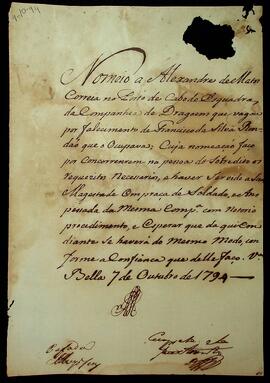 7-10-94
Nomeio a Alexandre de Mattos
Correia no Posto de Cabo de Esquadra,
da Companhia de Dragoens que vagou
por falecimento de Francisco da Silva
que o Ocupava; Cuja nomeação faço
por Concorrerem na pessoa do Sobredito os
requezitos Necessarios, e haver Servido a Sua
Magestade Com praça de Soldado, e Ans
pesada da mesma Comp.ª com Notorio
procedimento, e Esperar que daqui em
diante Se haverá do mesmo modo, con
forme a Confiança que delle faço. V.ª
Bella 7 de Outubro de 1794